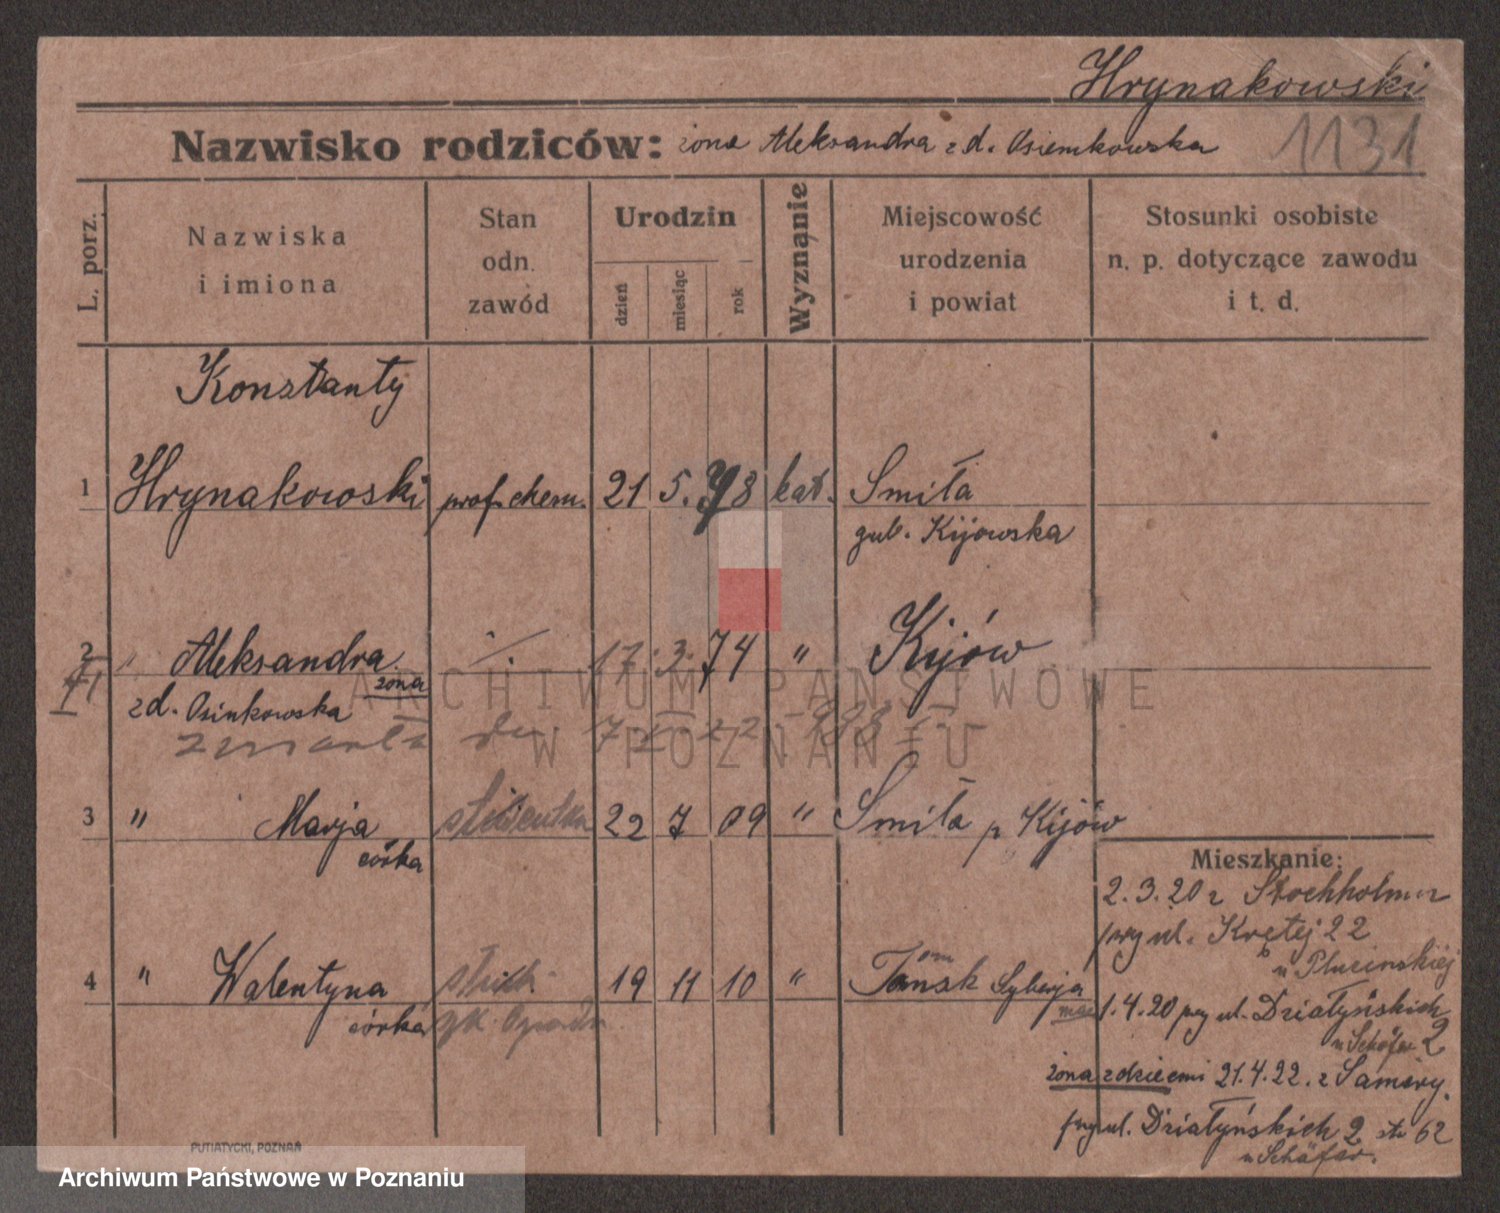 Hrynakowski
Nazwisko rodziców: żona Aleksandra z d. Osiemkowska
1131
L. porz.
Nazwiska
i imiona
Stan
odn.
zawód
Urodzin
dzień
miesiąc
rok
Wyznanie
Miejscowość
urodzenia
i powiat
Stosunki osobiste
n. p. dotyczące zawodu
i t. d.
Konstanty
1 Hrynakowski prof. chem. 21 5. 78 kat. Smiła
gub. Kijowska
2 " Aleksandra ·/· 17. 3. 74 " Kijów
żona
z d. Osinkowska
zmarła dn 7
3 " Marja studentka 22 7 09 " Smiła p Kijów
córka
4 " Walentyna stud. 19 11 10 " Tomsk Syberja
córka
Mieszkanie:
2.3.20 z Stockholmu
przy ul. Krętej 22
u Plucinskiej
1.4.20 przy ul. Działyńskich 2
u Schäfer
żona z dziećmi 21.4.22. z Samary.
przy ul. Działyńskich 2 62
u Schäfer.
PUTIATYCKI, POZNAŃ
ARCHIWUM PAŃSTWOWE
W POZNANIU
Archiwum Państwowe w Poznaniu